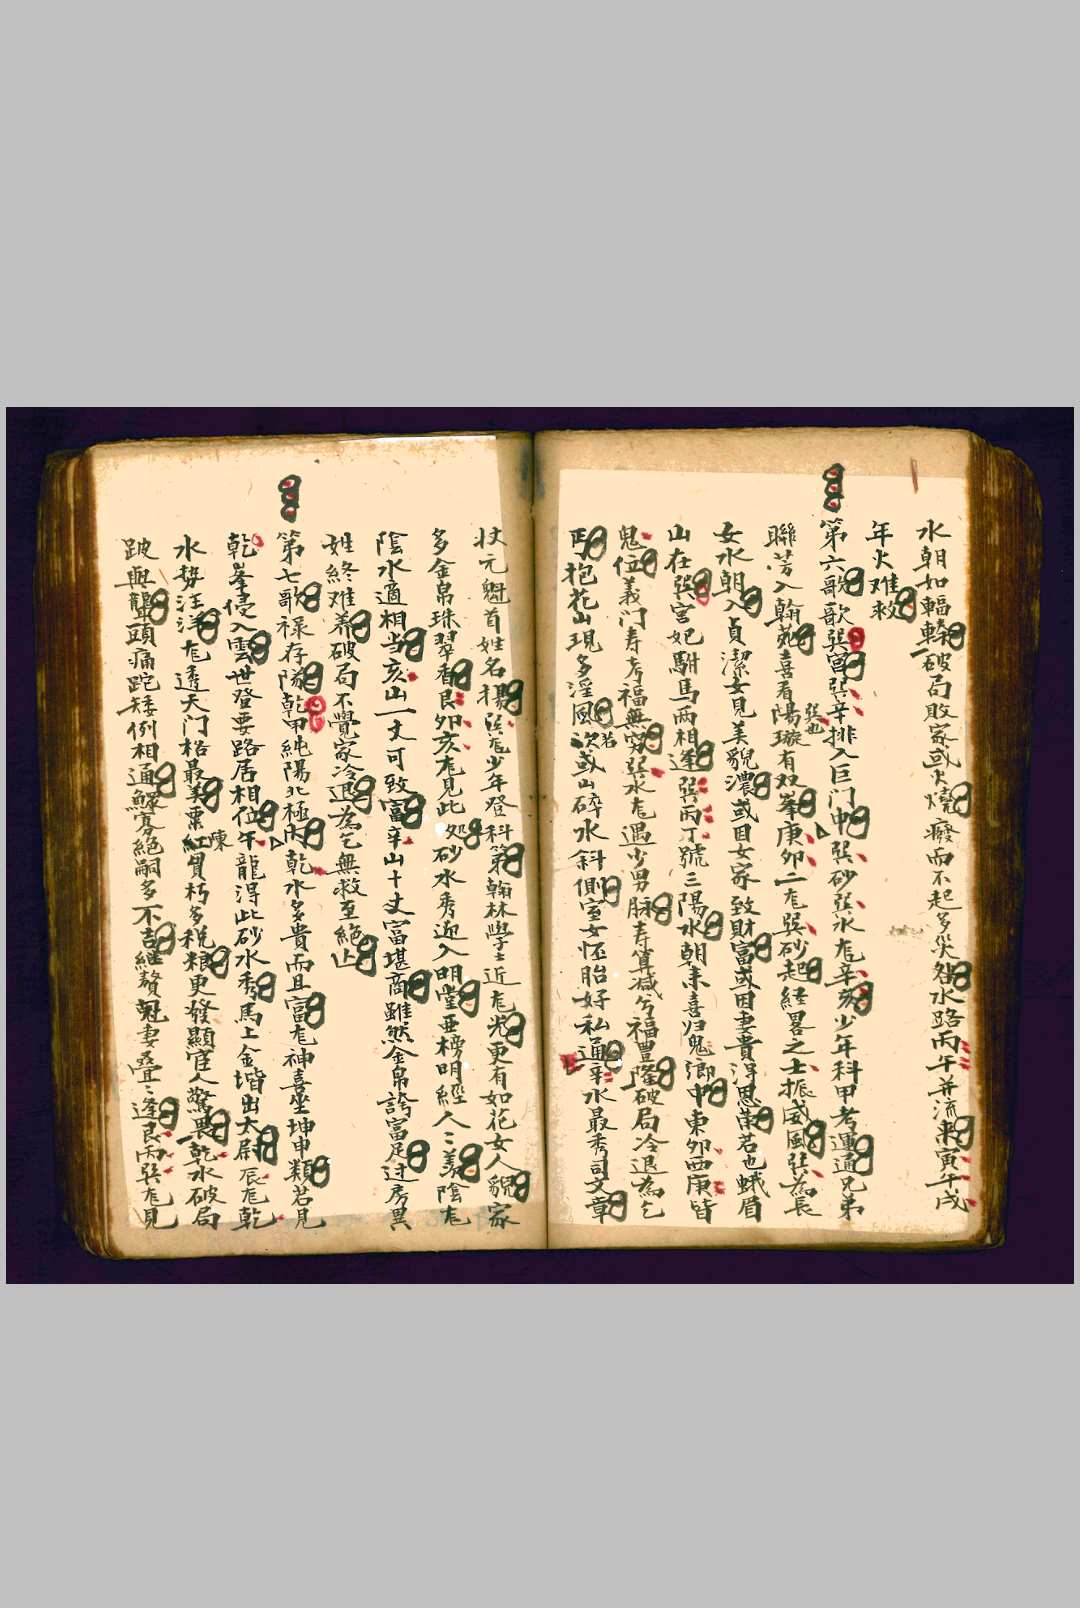 水朝如輻輳破局敗家或火燒癈而不起多災咎水路丙午并流来寅午戌
年火难救
第六歌歌巽宮巽辛排入巨门中巽砂巽水尨辛亥少年科甲考運通兄弟
聯芳入翰苑喜看陽璇有双峯庚卯二尨巽砂起経畧之士振威風巽為長
巽也
女水朝入貞潔女見美貌濃或因女家致財富或因妻貴淂恩荣若也蛾眉
山在巽宮妃駙馬两相逢巽丙丁號三陽水朝来喜归鬼鄉中東卯西庚皆
鬼位義门寿考福無穷巽水尨遇少男脉寿算减兮福豊隆破局冷退為乞
丐抱花山現多淫風次或山碎水斜側室女怀胎好私通辛水最秀司文章
若
状元魁首姓名揚巽尨少年登科第翰林學士近尨光更有如花女人貌家
多金帛珠翠香艮卯亥尨見此砂水秀迎入明堂亜榜明經人二羨陰尨
陰水適相当亥山一丈可致富辛山十丈富堪商雖然金帛誇富足过房異
姓終难养破局不覺家冷退為乞無救至絶亾
第七歌祿存隊乾甲純陽北極内乾水多貴而且富尨神喜坐坤申類若見
乾峯侵入雲世登要路居相位午龍淂此砂水秀馬上金堦出太尉辰尨乾
水势汪洋尨透天门格最美粟紅貫朽多税粮更發顯宦人驚畏乾水破局
陳
跛與聾頭痛跎矮例相通鰥寡絶嗣多不吉継赘魁妻叠二逢艮丙巽尨見